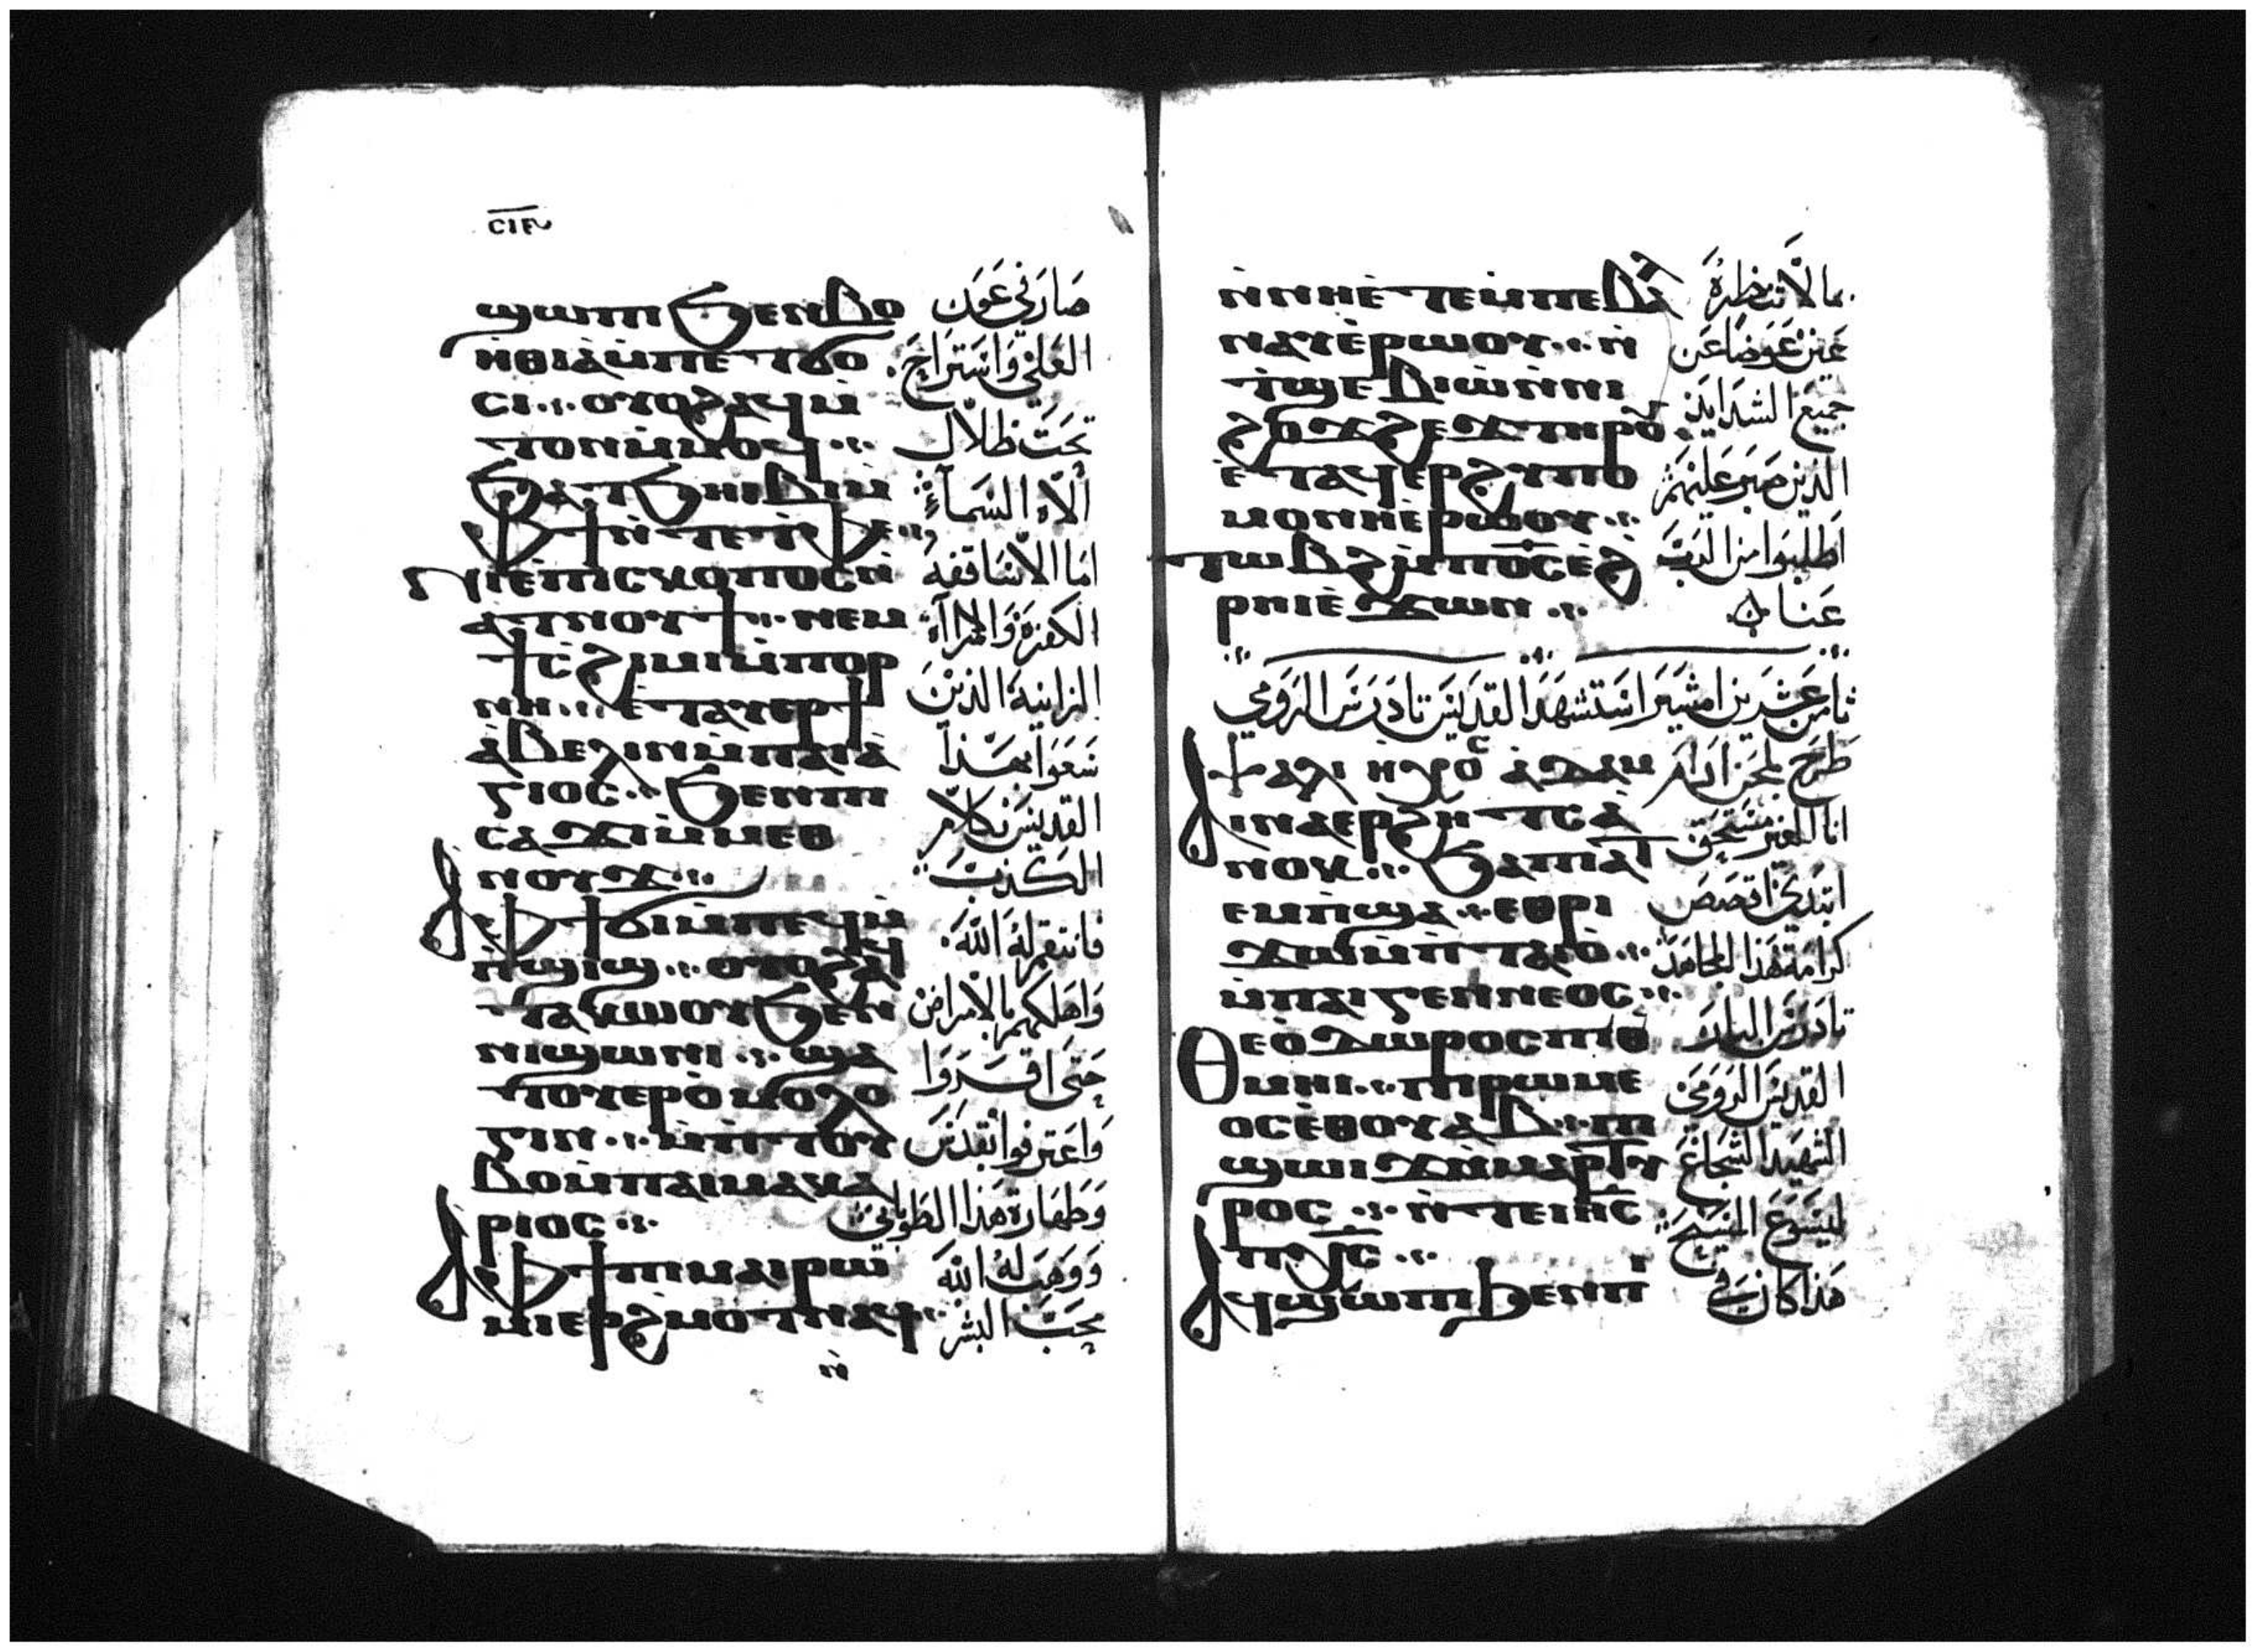 ⲥⲓⲋ
ϣⲱⲡⲓ ϧⲉⲛ ⲃⲟ
ⲏⲑⲓⲁ ⲙ̀ⲡⲉⲧϭⲟ
ⲥⲓ ⲟⲩⲟϩ ⲁϥⲙ̀
ⲧⲟⲛ ⲙ̀ⲙⲟϥ
ϧⲁⲧϧⲏⲓⲃⲓ ⲙ̀
ⲫϯ ⲛ̀ⲧⲉ ⲧ̀ⲫⲉ
ⲛⲓⲉ̀ⲡⲓⲥⲕⲟⲡⲟⲥ ⲛ̀
ⲁ̀ⲑⲛⲟⲩϯ ⲛⲉⲙ
ϯⲥ̀ϩⲓⲙⲓ ⲙ̀ⲡⲟⲣ
ⲛⲏ ⲉ̀ⲧⲁⲩⲉⲣϯ
ⲁ̀ⲃⲉⲗⲓⲛ ⲙ̀ⲡⲁⲓⲁ̀
ⲅⲓⲟⲥ ϧⲉⲛ ⲡⲓ
ⲥⲁϫⲓ ⲙ̀ⲙⲉⲑ
ⲛⲟⲩϫ
ⲁ̀ⲫϯ ϭⲓ ⲙ̀ⲡⲉϥⲙ̀
ⲡ̀ϣⲓϣ ⲟⲩⲟϩ ⲁϥ
ⲧⲁⲕⲱⲟⲩ ϧⲉⲛ
ⲛⲓϣⲱⲛⲓ ϣⲁ
ⲧⲟⲩⲉⲣⲟ̀ⲙⲟⲗⲟ
ⲅⲓⲛ ⲙ̀ⲡ̀ⲧⲟⲩ
ⲃⲟ ⲙ̀ⲡⲁⲓⲙⲁⲕⲁ
ⲣⲓⲟⲥ
ⲁ̀ⲫϯ ⲡⲓⲙⲁⲓⲣⲱ
ⲙⲓ ⲉⲣϩⲙⲟⲧ ⲛⲁϥ
ⲛ̀
صار في عون
العلي واستراح
تحت ظلال
الاه السماء
اما الاساقفه
الكفرة والمرآة
الزانية الذين
سعوا بهذا
القديس بكلام
الكذب
فانتقم له الله
واهلكهم بالامراض
حتى اقروا
واعترفوا بقدس
وطهارة هذا الطوباني
ووهب له الله
محب البشر
ⲛ̀ⲛⲏⲉ̀ⲧⲉ ⲙ̀ⲡⲉ ⲃⲁⲗ
ⲛⲁⲩ ⲉ̀ⲣⲱⲟⲩ ⲛ̀
ⲧ̀ϣⲉⲃⲓⲱ̀ ⲛ̀ⲛⲓ
ϩⲟϫϩⲉϫ ⲧⲏⲣⲟⲩ
ⲉ̀ⲧⲁϥⲉⲣϩⲩⲡⲟ
ⲙⲟⲛⲛⲏ ⲉ̀ⲣⲱⲟⲩ
ⲧⲱⲃϩ ⲙ̀ⲡⲟ̅ⲥ̅ ⲉ̀ϩ
ⲣⲏⲓ ⲉ̀ϫⲱⲛ
بما لا تنظره
عين عوضا عن
جميع الشدايد
الذين صبر عليهم
اطلبوا من الرب
عنا
ثامن عشرين امشير استشهد القديس تادرس الرومي
ⲯⲁⲗⲓ ⲏⲭⲟⲥ ⲁ̀ⲇⲁⲙ
طرح بلحن ادام
ⲁⲓⲛⲁⲉⲣϩⲏⲧⲥ ⲁ̀
ⲛⲟⲕ ϧⲁ ⲡⲓⲁⲧ
ⲉⲙⲡ̀ϣⲁ ⲉⲑⲣⲓ
ϫⲱ ⲙ̀ⲡ̀ⲧⲁⲓⲟ̀
ⲙ̀ⲡⲁⲓⲅⲉⲛⲛⲉⲟⲥ
ⲑⲉⲟ̀ⲇⲱⲣⲟⲥ ⲡⲓⲑ
ⲙⲏⲓ ⲡⲓⲣⲱⲙⲉ
ⲟⲥ ⲉ̀ⲑⲟⲩⲁⲃ ⲡⲓ
ϣⲱⲓϫ ⲙ̀ⲙⲁⲣⲧⲩ
ⲣⲟⲥ ⲛ̀ⲧⲉ ⲓⲏ̅ⲥ̅
ⲡⲭ̅ⲥ̅
ⲁϥϣⲱⲡⲓ ϧⲉⲛ ⲡ
انا الغير مستحق
ابتدي اقصص
كرامة هذا المجاهد
تادرس البار
القديس الرومي
الشهيد الشجاع
ليسوع المسيح
هذا كان في